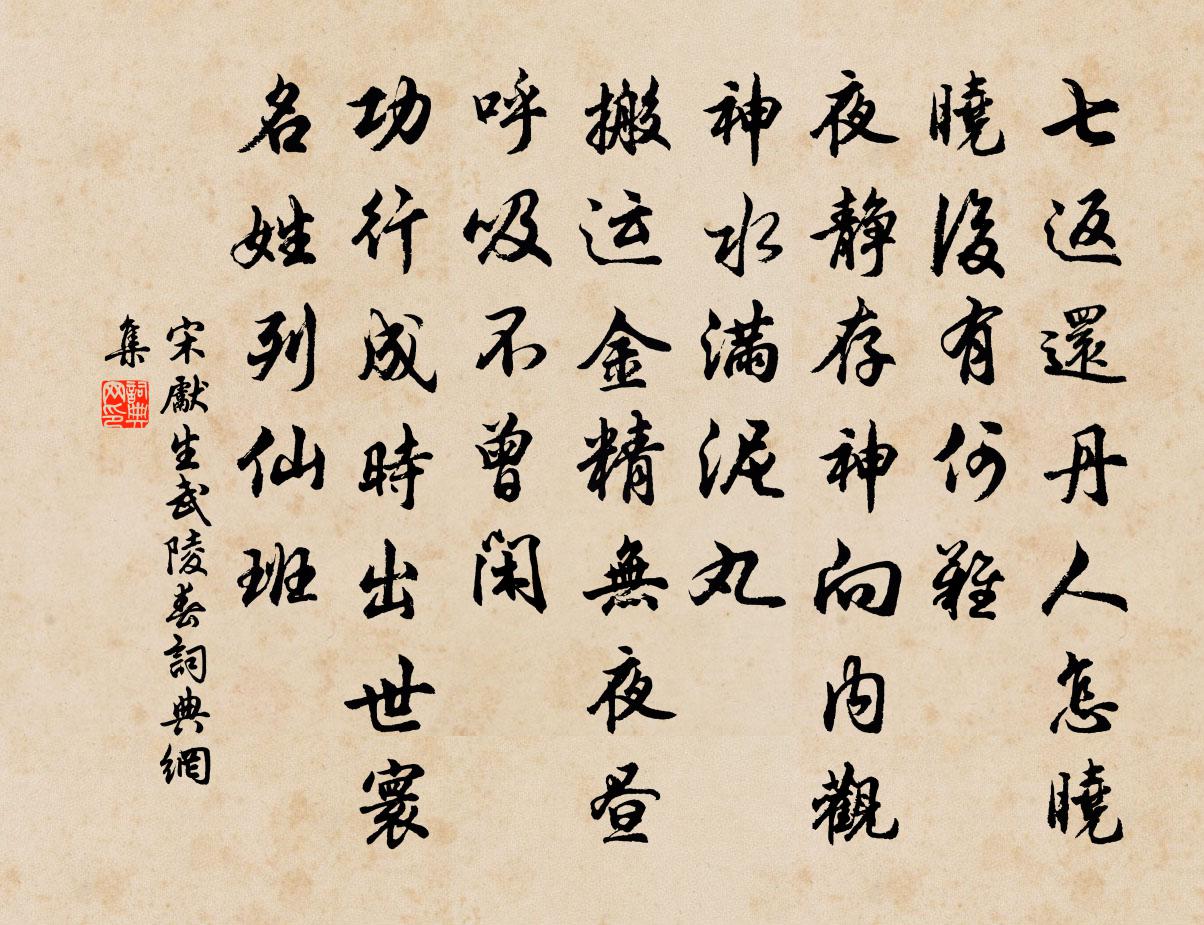 七返還丹人怎曉
曉後有何難
夜靜存神向內觀
神水滿泥丸
搬运金精無夜昼
呼吸不曾閑
功行成時出世寰
名姓列仙班
宋獻生武陵春詞典網
集
詞典
网印